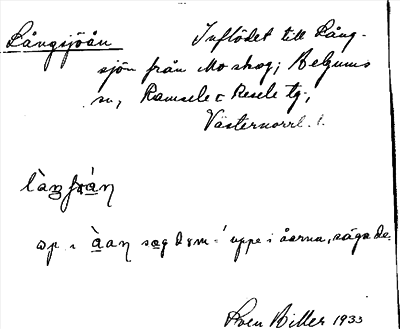 Långsjöån Inflödet till Lång-
sjön från Moskog; Belgums
sn, Ramsele o Resele tg.,
Västernorrl. l.
up i åan sag dom = uppe i åarna, säga de.
Sven Biller 1933